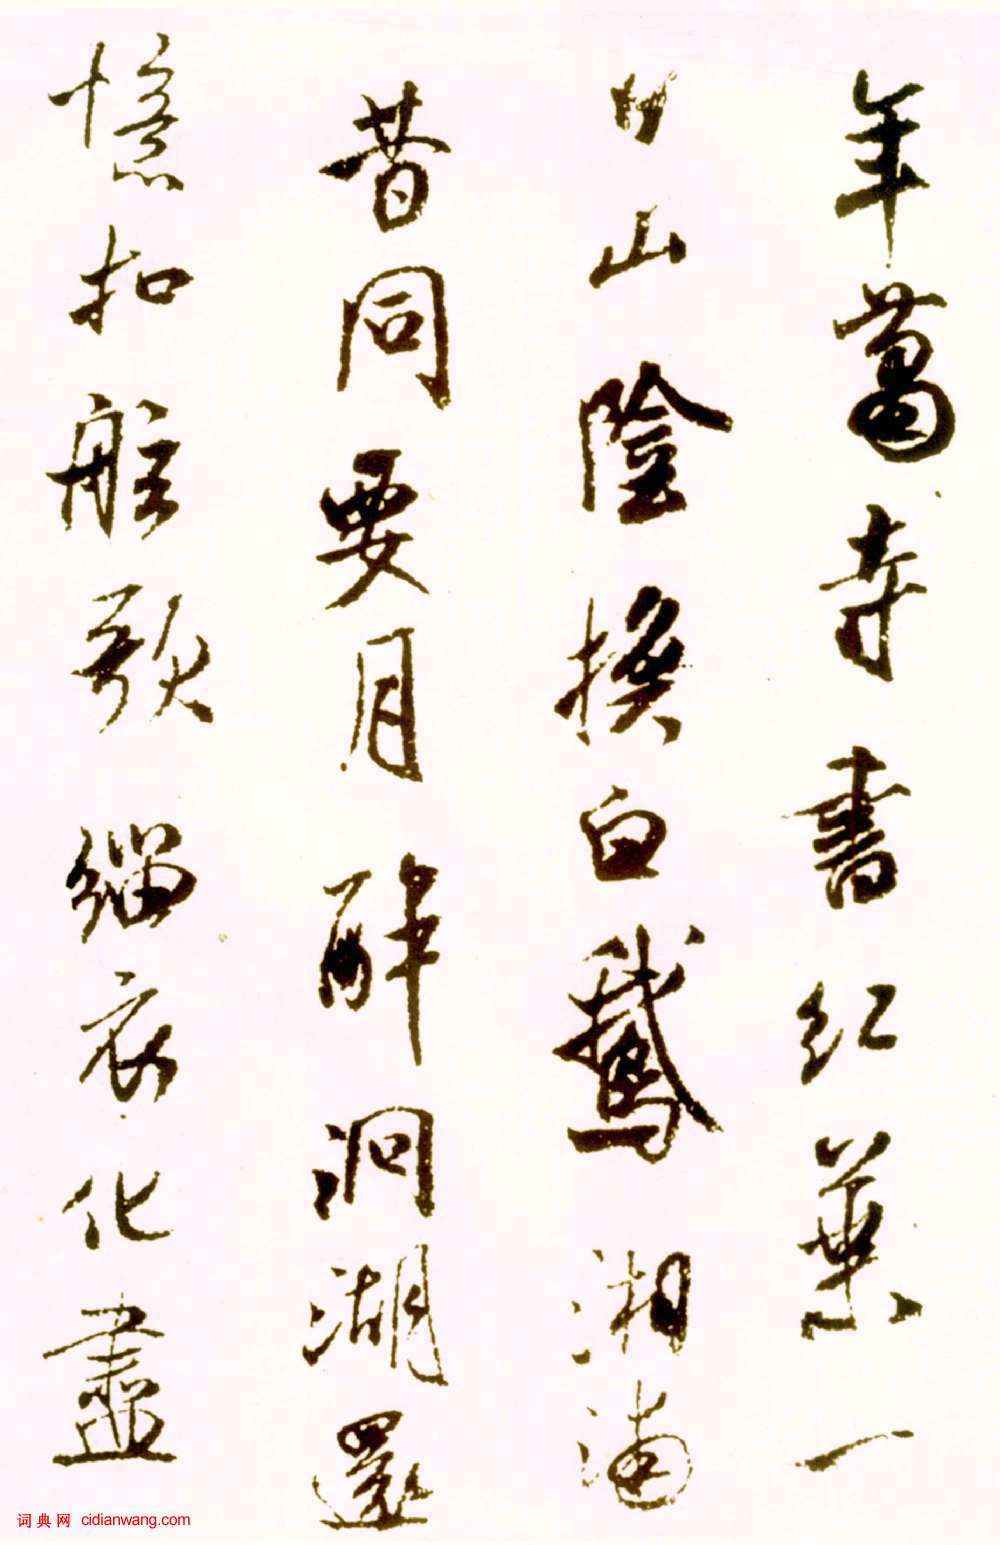 年蕭寺書紅葉一
日山陰換白鵝湘浦
昔同要月醉洞湖還
憶扣舷歌緇衣化盡
词典网 cidianwang.com